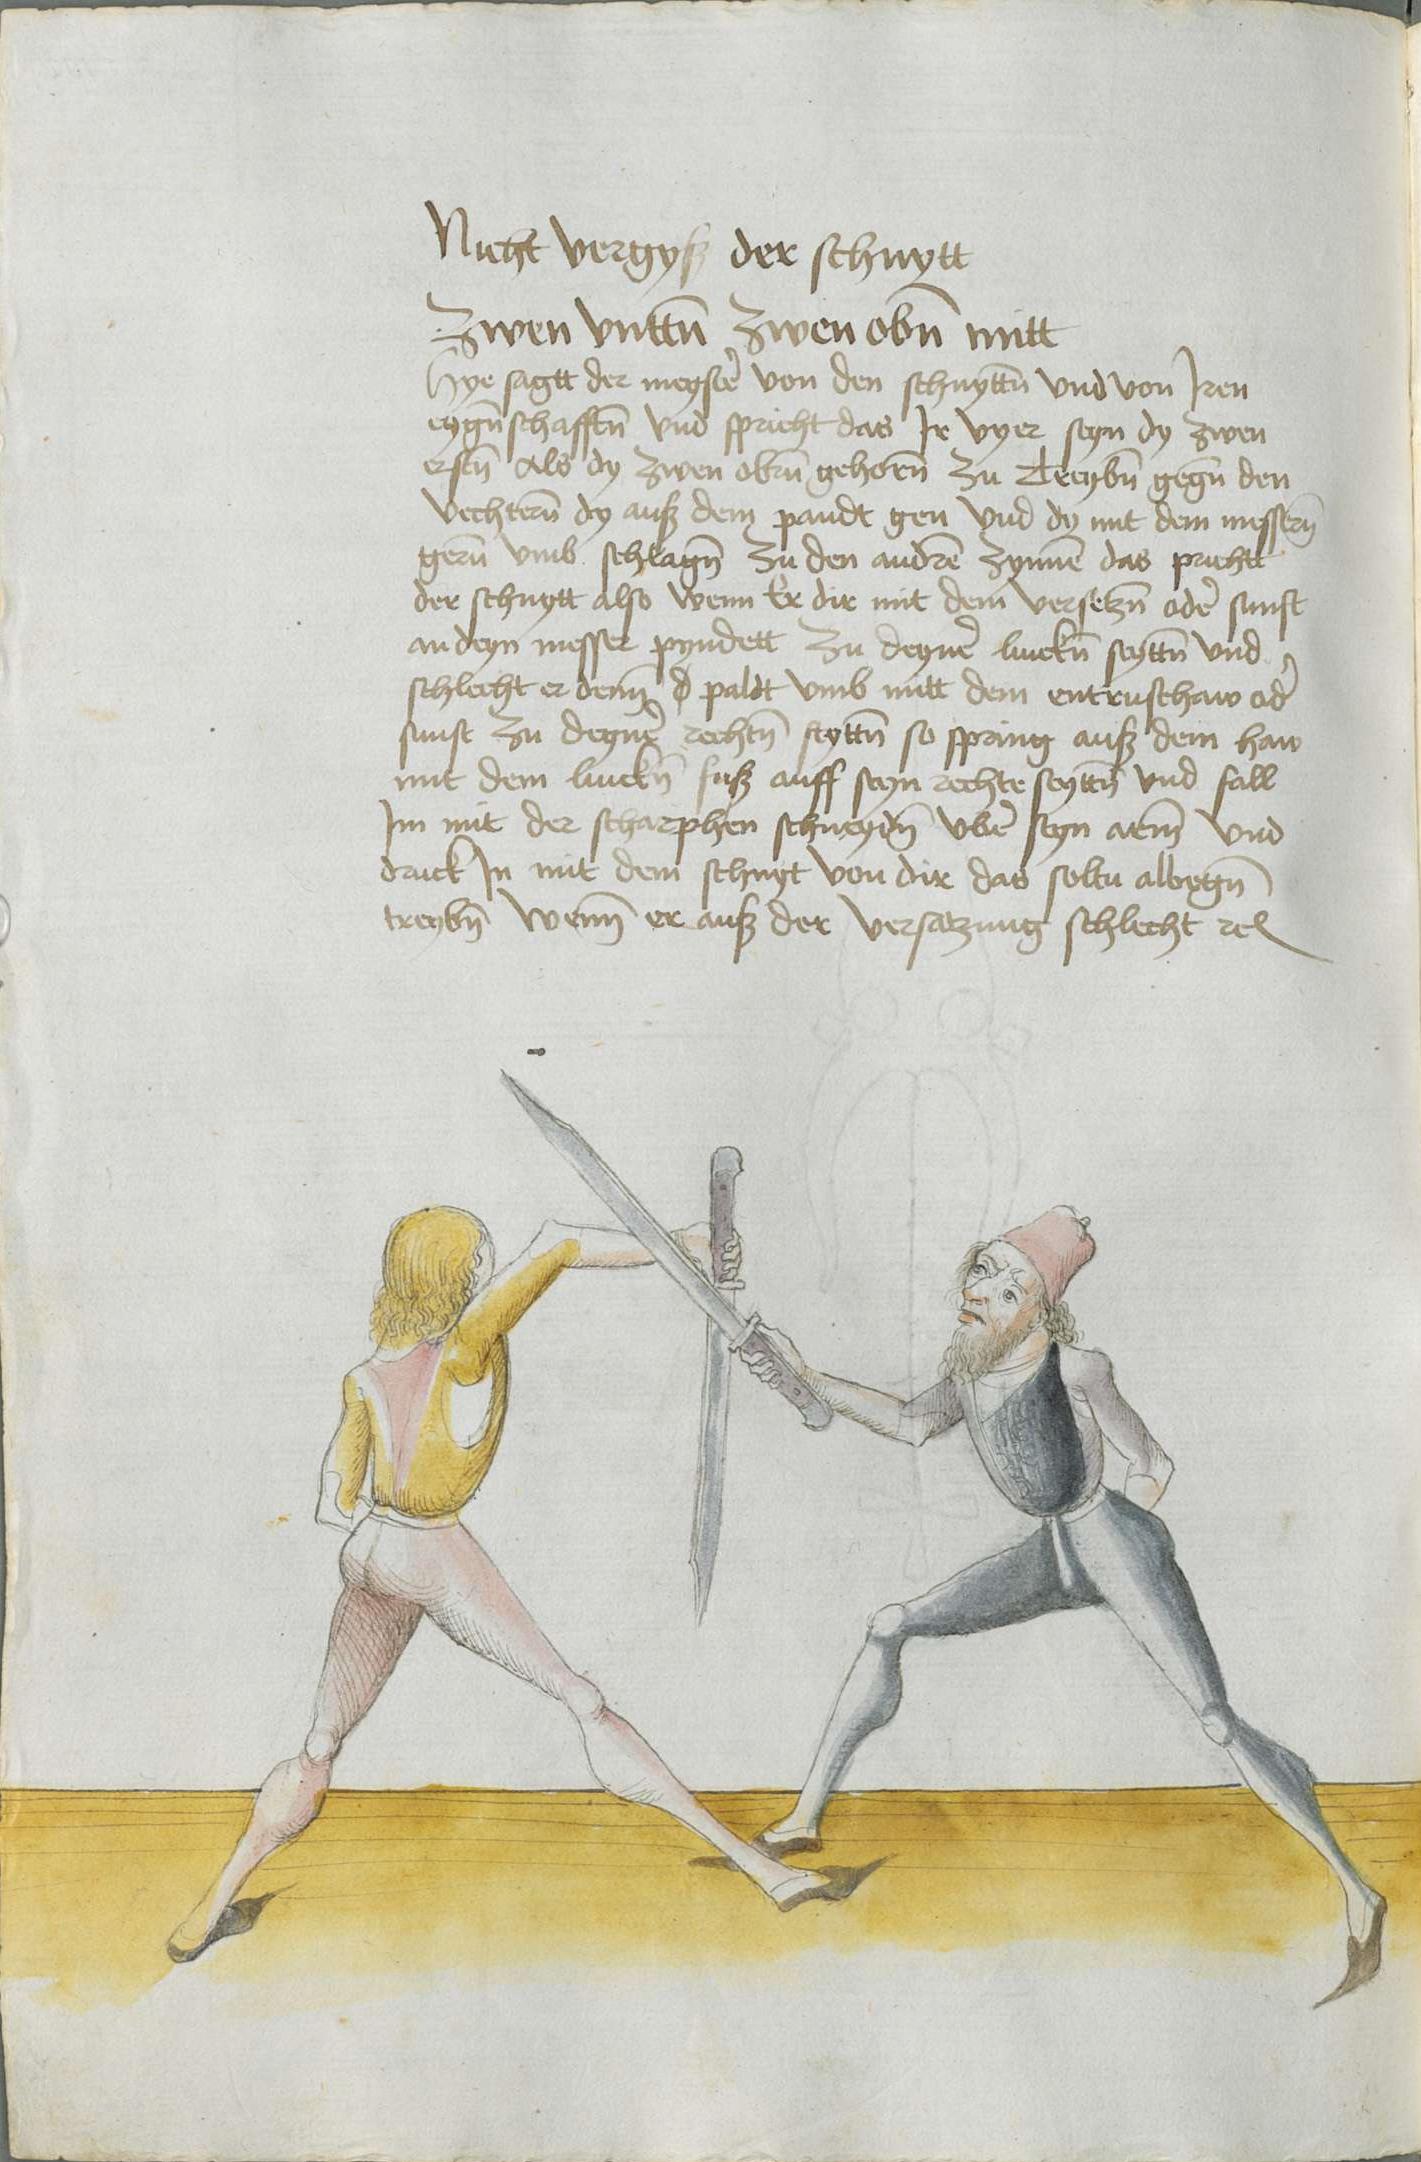 Nicht vergyß der schnytt
Zwen vnttn̄ Zwen obn̄ mitt
Hye sagtt der meyster̄ von den schnyttn̄ vnd von Iren
eygn̄schafftn̄ vnd spricht das Ir vyer seyn dy zwen
erstn̄ Als dy zwen obrn̄ gehorn̄ zu treybn̄ gegn̄ den
vechtern̄ dy auß dem pandt gen vnd dy mit dem messern̄
gern̄ vmb schlagn̄ zu den andrē zynnē das prichtt
der schnytt also wenn Er dir mit dem versetzn̄ oder̄ sunst
an deyn messer pyndett zu deyner̄ linckn̄ seyttn̄ vnd
schlecht er denn̄ d paldt vmb mitt dem entrusthaw oder̄
sunst zu deyner̄ rechtn̄ seyttn̄ so spring auß dem haw
mit dem linckn̄ fuß auff seyn rechte seyttn̄ vnd fall
Im mit der scharphen schneydn̄ vber̄ seyn arm̄ vnd
druck In mit dem schnyt von dir das soltu albegn̄
treybn̄ wenn̄ er auß der versatzung schlecht rc